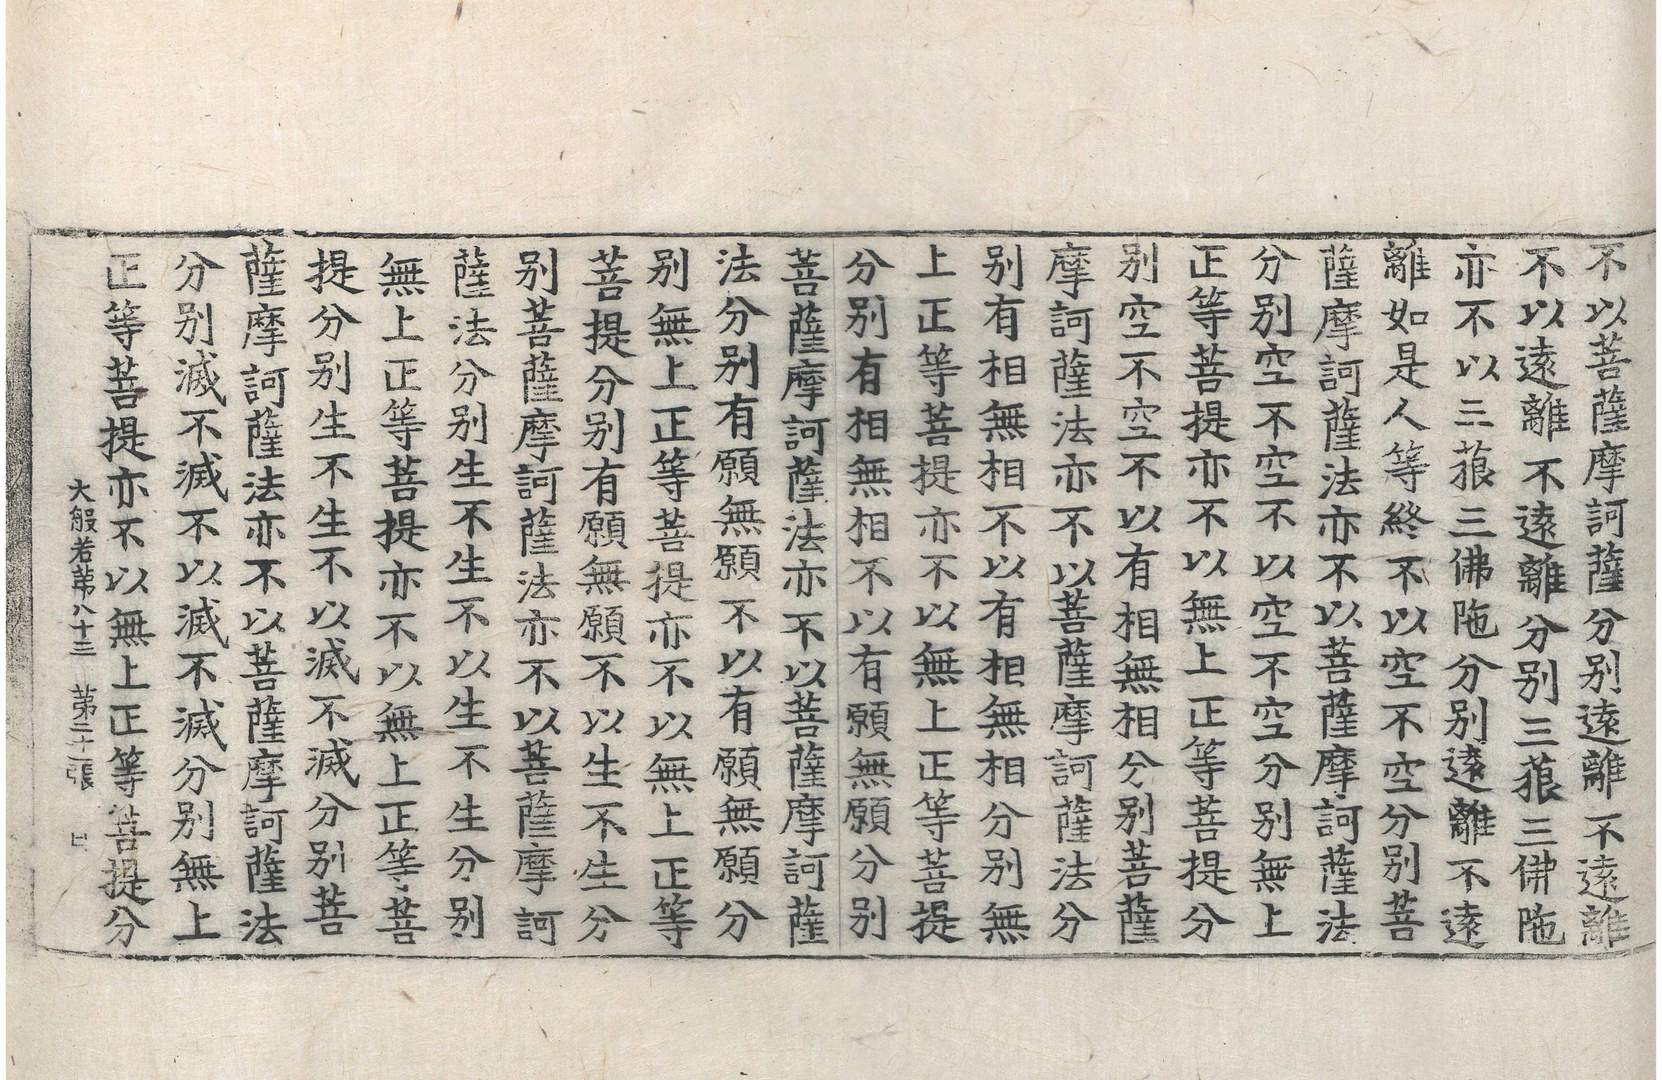 不以菩薩摩訶薩分别遠離不遠離
不以遠離不遠離分别三藐三佛陁
亦不以三藐三佛陁分别遠離不遠
離如是人等終不以空不空分别菩
薩摩訶薩法亦不以菩薩摩訶薩法
分别空不空不以空不空分别無上
正等菩提亦不以無上正等菩提分
别空不空不以有相無相分别菩薩
摩訶薩法亦不以菩薩摩訶薩法分
别有相無相不以有相無相分别無
上正等菩提亦不以無上正等菩提
分别有相無相不以有願無願分别
菩薩摩訶薩法亦不以菩薩摩訶薩
法分别有願無願不以有願無願分
别無上正等菩提亦不以無上正等
菩提分别有願無願不以生不生分
别菩薩摩訶薩法亦不以菩薩摩訶
薩法分别生不生不以生不生分别
無上正等菩提亦不以無上正等菩
提分别生不生不以滅不滅分别菩
薩摩訶薩法亦不以菩薩摩訶薩法
分别滅不滅不以滅不滅分别無上
正等菩提亦不以無上正等菩提分
大般若第八十三